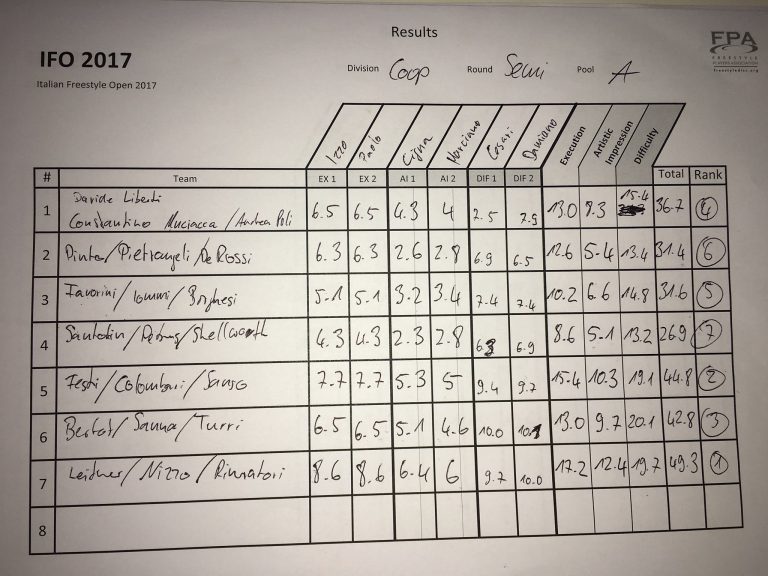 Results
IFO 2017
Italian Freestyle Open 2017
Division Coop Round Semi Pool A
FPA
FREESTYLE
PLAYERS ASSOCIATION
freestyledisc.org
Izzo Paolo Cigna Marciano Cesari Damiano Execution Artistic Impression Difficulty
# Team EX 1 EX 2 AI 1 AI 2 DIF 1 DIF 2 Total Rank
Davide Liberti
1 Constantino Muciacca / Andrea Poli 6.5 6.5 4.3 4 7.5 7.9 13.0 8.3 15.4 36.7 4
2 Pinto / Pietrangeli / De Rossi 6.3 6.3 2.6 2.8 6.9 6.5 12.6 5.4 13.4 31.4 6
3 Favorini / Iommi / Borghesi 5.1 5.1 3.2 3.4 7.4 7.4 10.2 6.6 14.8 31.6 5
4 / / Shellworth 4.3 4.3 2.3 2.8 6.3 6.9 8.6 5.1 13.2 26.9 7
5 Festi / Colombari / Sanso 7.7 7.7 5.3 5 9.4 9.7 15.4 10.3 19.1 44.8 2
6 Bertot / Sanna / Turri 6.5 6.5 5.1 4.6 10.0 10.1 13.0 9.7 20.1 42.8 3
7 Leidner / Nizzo / Rimatori 8.6 8.6 6.4 6 9.7 10.0 17.2 12.4 19.7 49.3 1
8